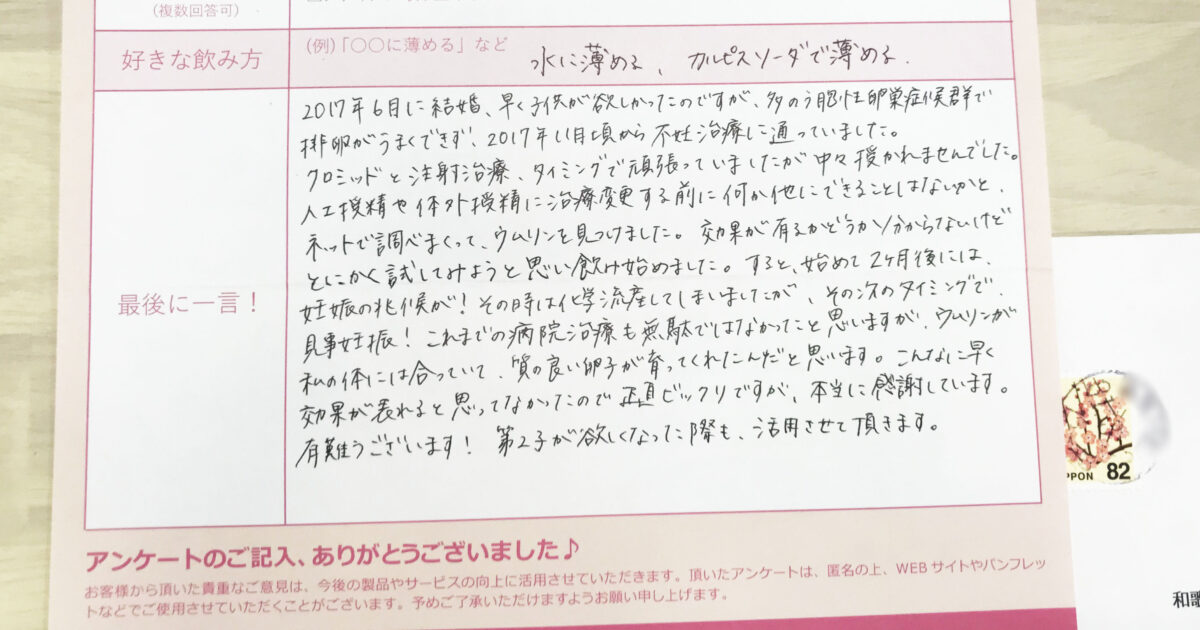 (複数回答可)
好きな飲み方
(例)「〇〇に薄める」など
水に薄める、カルピスソーダで薄める.
最後に一言！
2017年6月に結婚、早く子供が欲しかったのですが、多のう胞性卵巣症候群で
排卵がうまくできず、2017年11月頃から不妊治療に通っていました。
クロミッドと注射治療、タイミングで頑張っていましたが中々授かれませんでした。
人工授精や体外授精に治療変更する前に何か他にできることはないかと、
ネットで調べまくって、ウムリンを見つけました。効果が有るかどうか分からないけど
とにかく試してみようと思い飲け始めました。すると、始めて2ヶ月後には、
妊娠の兆候が！その時は化学流産してしまいましたが、その次のタイミングで、
見事妊娠！これまでの病院治療も無駄ではなかったと思いますが、ウムリンが
私の体には合っていて、質の良い卵子が育ってくれたんだと思います。こんなに早く
効果が表れると思ってなかったので正直ビックリですが、本当に感謝しています。
有難うございます！第2子が欲しくなった際も、活用させて頂きます。
アンケートのご記入、ありがとうございました♪
お客様から頂いた貴重なご意見は、今後の製品やサービスの向上に活用させていただきます。頂いたアンケートは、匿名の上、WEBサイトやパンフレッ
トなどでご使用させていただくことがございます。予めご了承いただけますようお願い申し上げます。
PPON 82
和歌